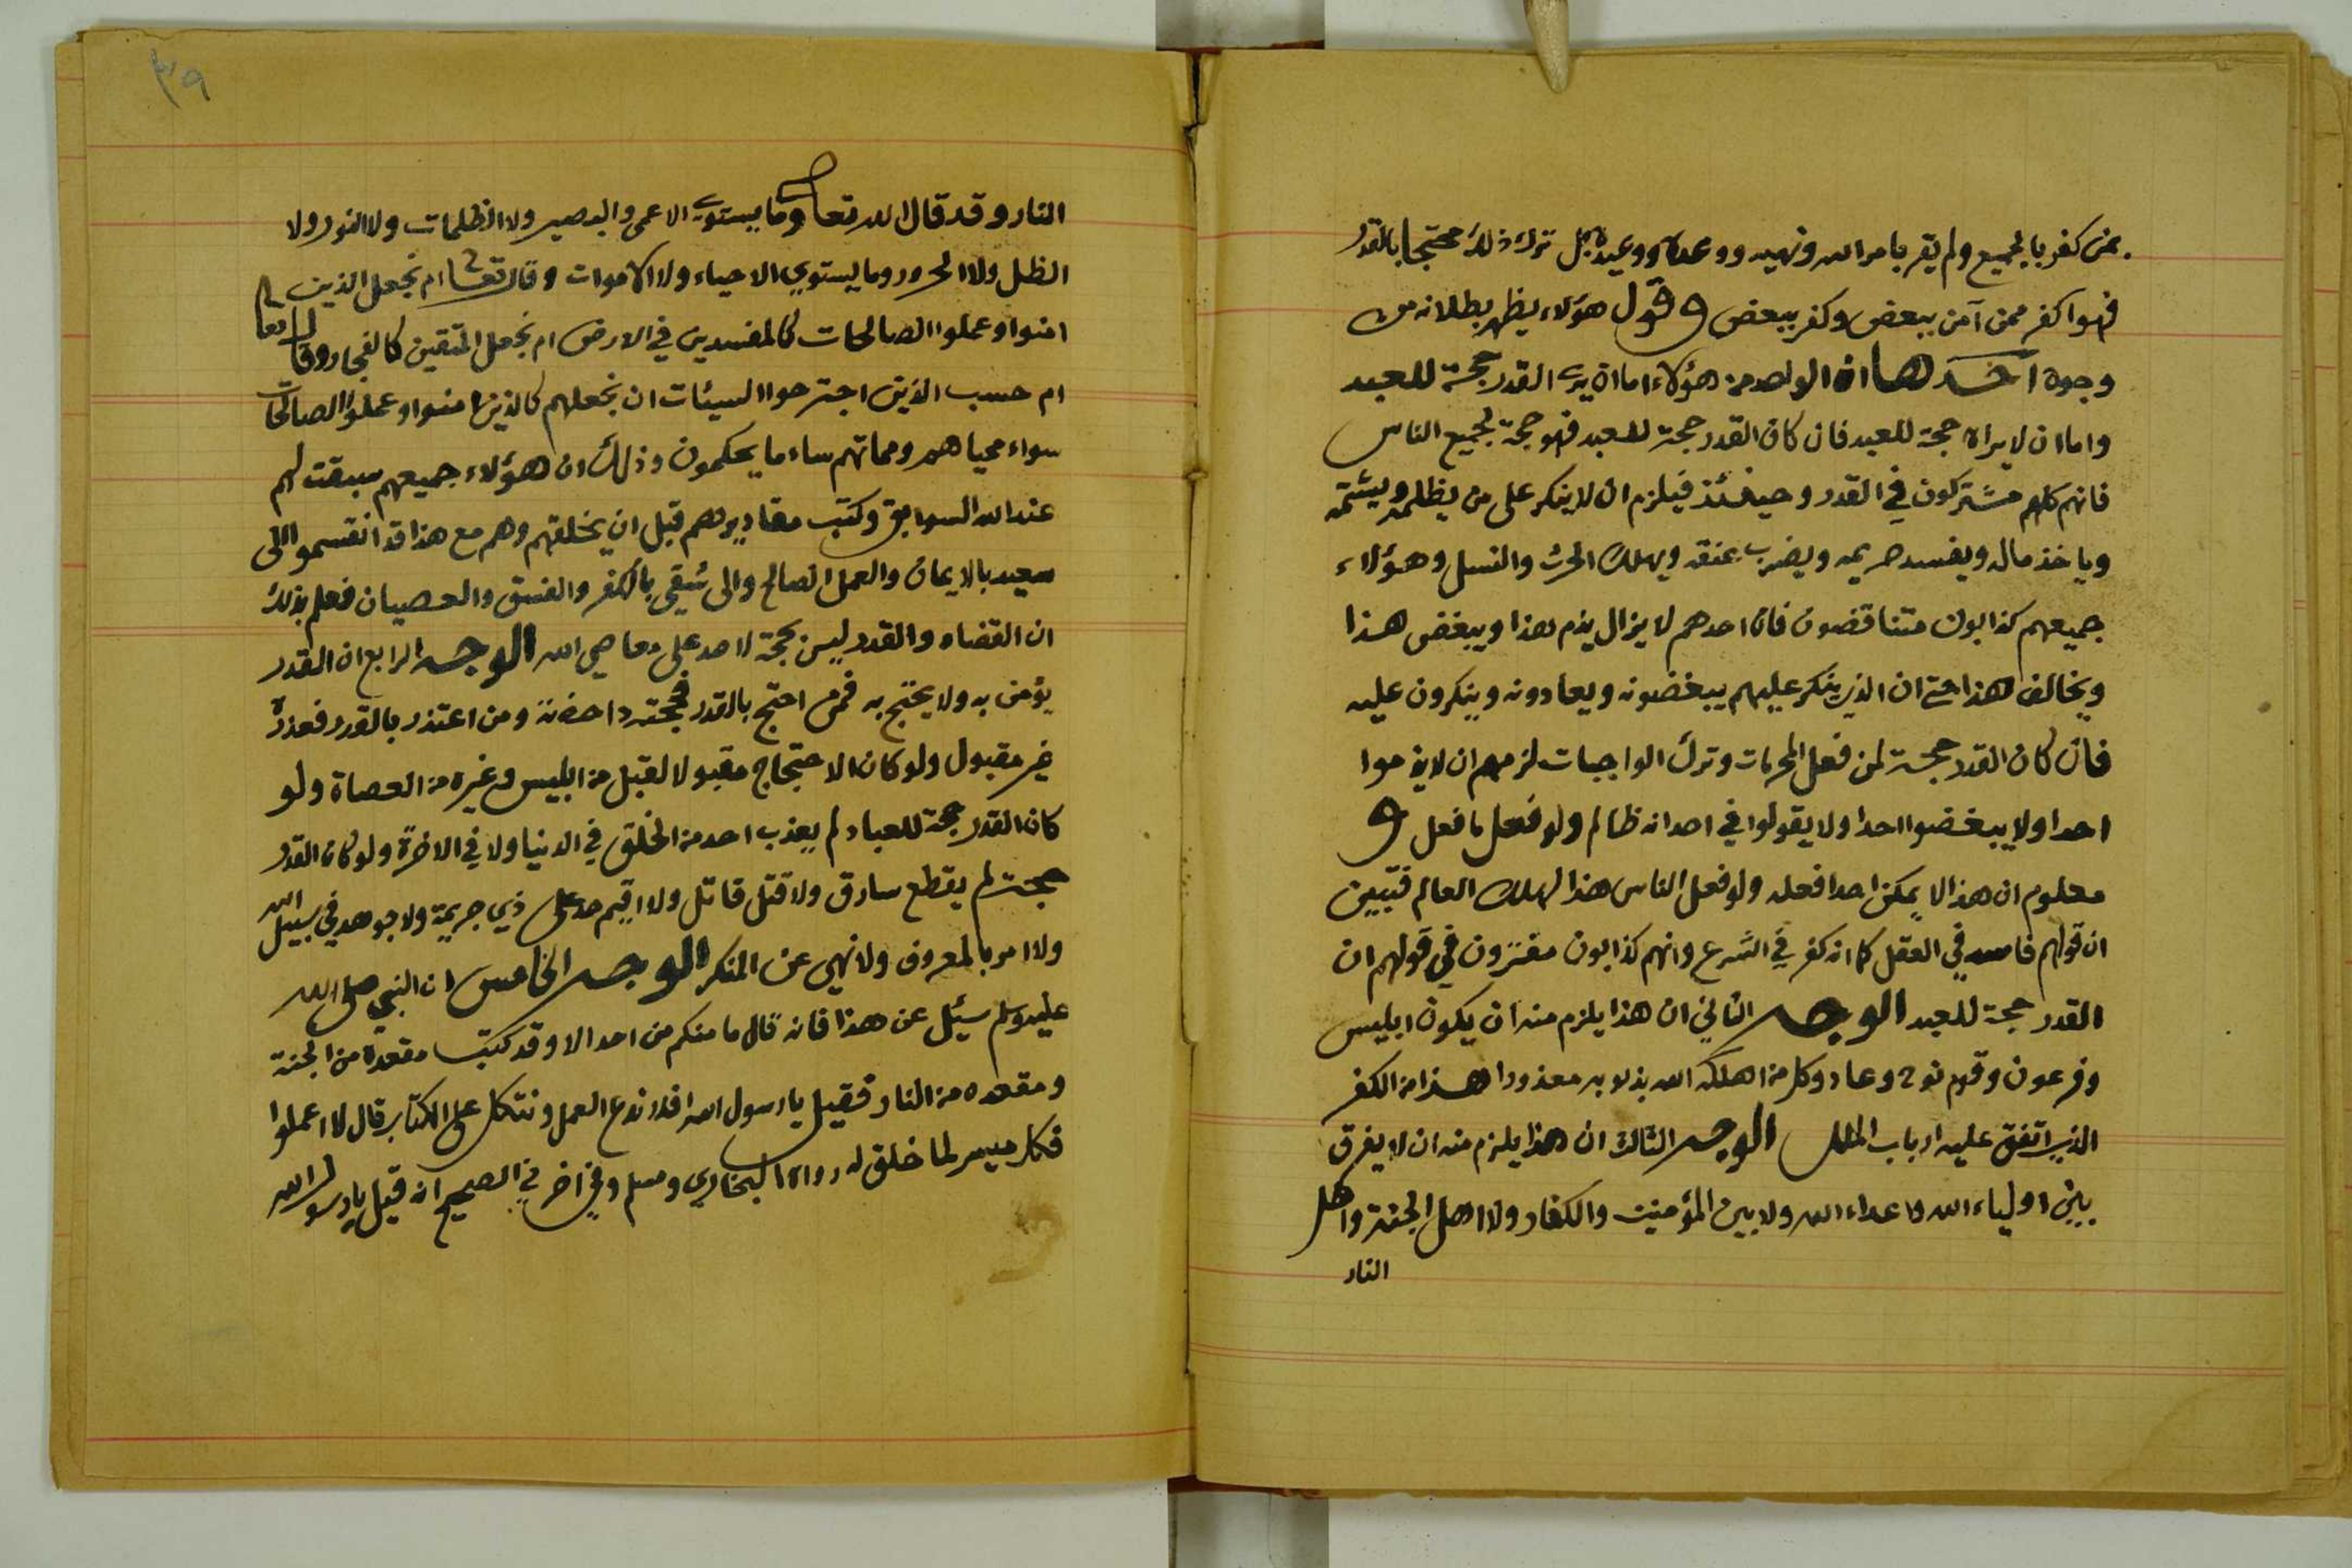 بمن كفر بالجميع ولم يقر بامر الله ونهيه ووعده ووعيده بل ترك ذلك محتجا بالقدر
فهوا كفر ممن آمن ببعض وكفر ببعض وقول هؤلاء يظهر بطلانه من
وجوه احدها ان الواحد من هؤلاء اما ان يرى القدر حجة للعبد
واما ان لا يراه حجة للعبد فان كان القدر حجة للعبد فهو حجة لجميع الناس
فانهم كلهم مشتركون في القدر وحينئذ فيلزم ان لا ينكر على من يظلمه ويشتمه
وياخذ ماله ويفسد حريمه ويضرب عنقه ويهلك الحرث والنسل وهؤلاء
جميعهم كذابون متناقضون فان احدهم لا يزال يذم هذا ويبغض هذا
ويخالف هذا حتى ان الذي ينكر عليهم يبغضونه ويعادونه وينكرون عليه
فان كان القدر حجة لمن فعل المحرمات وترك الواجبات لزمهم ان لا يذموا
احدا ولا يبغضوا احدا ولا يقولوا في احد انه ظالم ولو فعل ما فعل و
معلوم ان هذا لا يمكن احدا فعله ولو فعل الناس هذا لهلك العالم فتبين
ان قولهم فاسد في العقل كما انه كفر في الشرع وانهم كذابون مفترون في قولهم ان
القدر حجة للعبد الوجه الثاني ان هذا يلزم منه ان يكون ابليس
وفرعون وقوم نوح وعاد وكل من اهلكه الله بذنوبه معذورا هذا من الكفر
الذي اتفق عليه ارباب الملل الوجه الثالث ان هذا يلزم منه ان لا يفرق
بين اولياء الله واعداء الله ولا بين المؤمنين والكفار ولا اهل الجنة واهل
النار
٣٩
النار وقد قال الله تعالى وما يستوي الاعمى والبصير ولا الظلمات ولا النور ولا
الظل ولا الحرور وما يستوي الاحياء ولا الاموات وقال تعالى ام نجعل الذين
امنوا وعملوا الصالحات كالمفسدين في الارض ام نجعل المتقين كالفجار وقال تعالى
ام حسب الذين اجترحوا السيئات ان نجعلهم كالذين امنوا وعملوا الصالحات
سواء محياهم ومماتهم ساء ما يحكمون وذلك ان هؤلاء جميعهم سبقت لهم
عند الله السوابق وكتب مقاديرهم قبل ان يخلقهم وهم مع هذا قد انقسموا الى
سعيد بالايمان والعمل الصالح والى شقي بالكفر والفسق والعصيان فعلم بذلك
ان القضاء والقدر ليس بحجة لاحد على معاصي الله الوجه الرابع ان القدر
يؤمن به ولا يحتج به فمن احتج بالقدر فحجته داحضة ومن اعتذر بالقدر فعذره
غير مقبول ولو كان الاحتجاج مقبولا لقبل من ابليس وغيره من العصاة ولو
كان القدر حجة للعباد لم يعذب احد من الخلق في الدنيا ولا في الاخرة ولو كان القدر
حجت لم يقطع سارق ولا قتل قاتل ولا اقيم حد على ذي جريمة ولا جوهد في سبيل الله
ولا امر بالمعروف ولا نهي عن المنكر الوجه الخامس ان النبي صلى الله
عليه وسلم سئيل عن هذا فانه قال ما منكم من احد الا وقد كتب مقعده من الجنة
ومقعده من النار فقيل يا رسول الله افلا ندع العمل ونتكل على الكتاب قال لا اعملوا
فكل ميسر لما خلق له رواه البخاري ومسلم وفي اخر في الصحيح انه قيل يا رسول الله